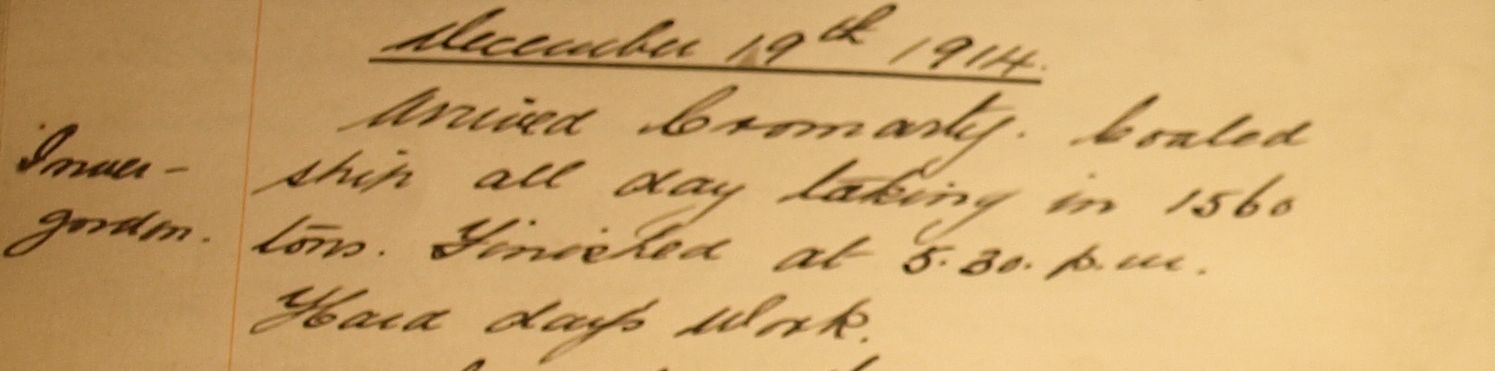 December 19th 1914.
Arrived Cromarty. Coaled
Inver-
ship all day taking in 1560
gordon.
tons. Finished at 5.30. p.m.
Hard day's work.